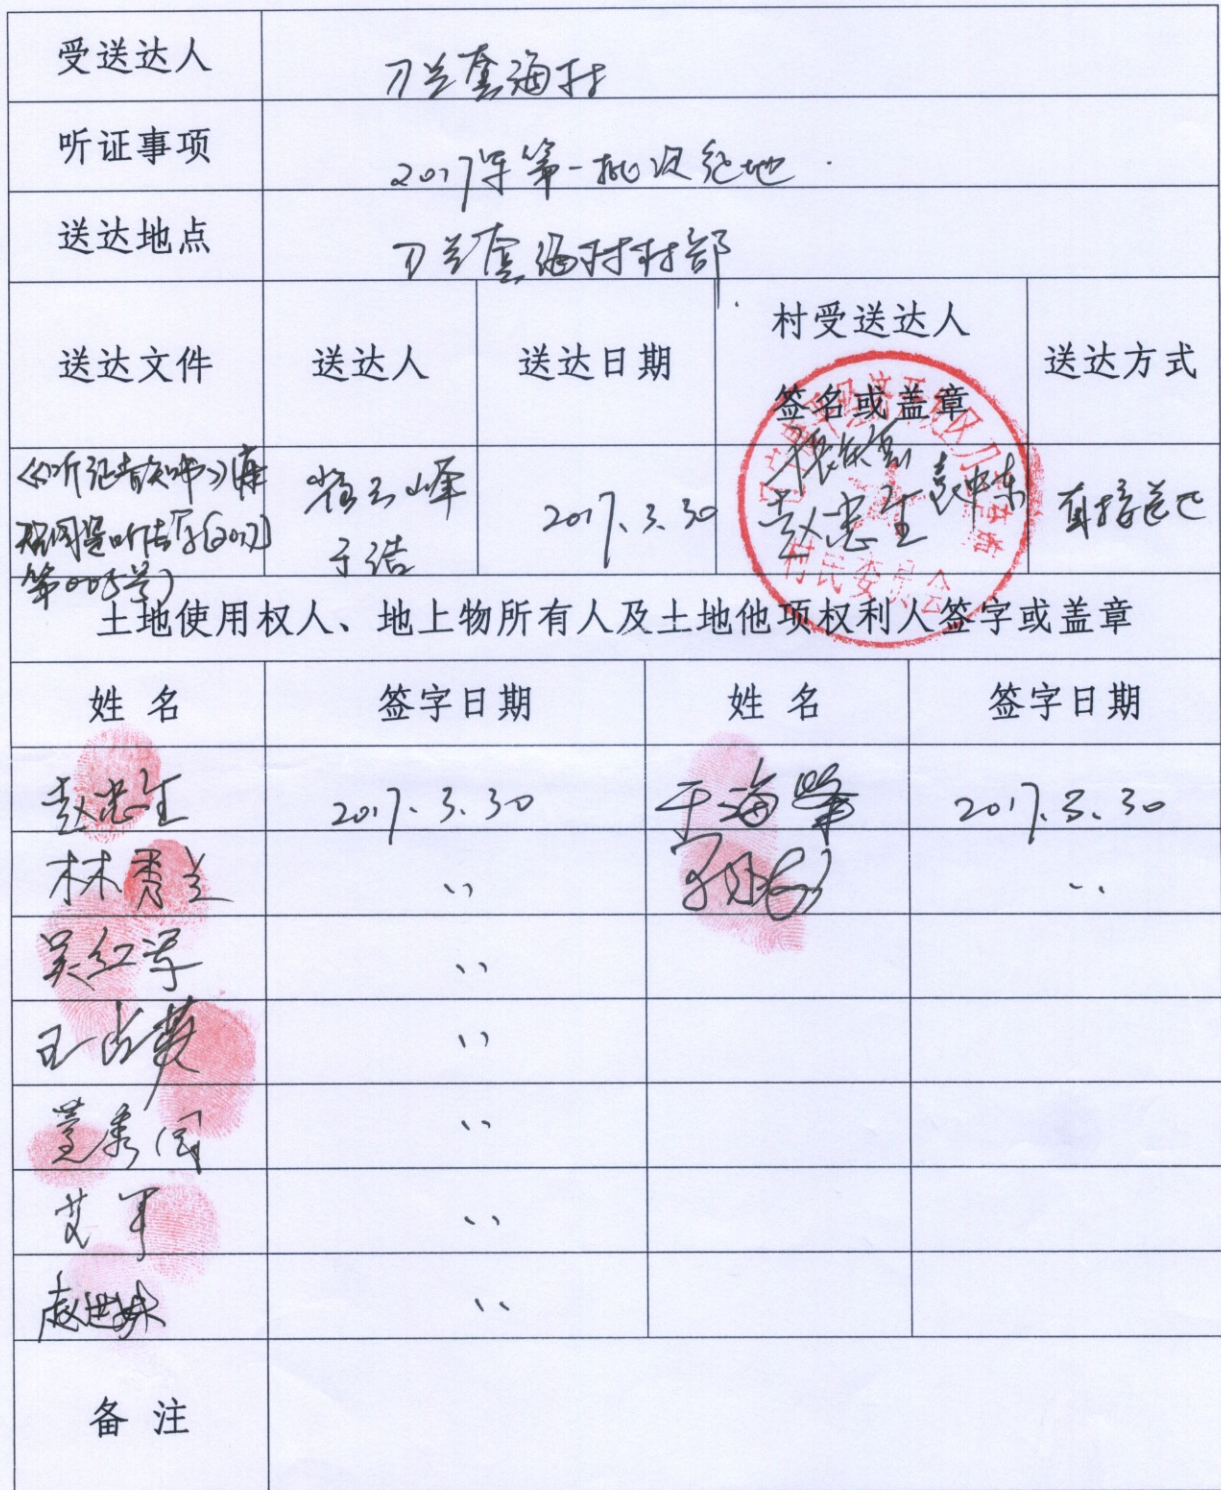 受送达人 刀兰套海村
听证事项 2017年第一批次征地
送达地点 刀兰套海村村部
送达文件 送达人 送达日期 村受送达人 签名或盖章 送达方式
《听证告知书》
听告字[2017]
第005号)
于洁
2017.3.30
赵忠生
直接送达
村民委员会
土地使用权人、地上物所有人及土地他项权利人签字或盖章
姓名 签字日期 姓名 签字日期
赵忠生 2017.3.30 于海 2017.3.30
林秀兰 〃 〃
吴红军 〃
王占英 〃
董秀阁 〃
艾军 〃
赵世 〃
备注